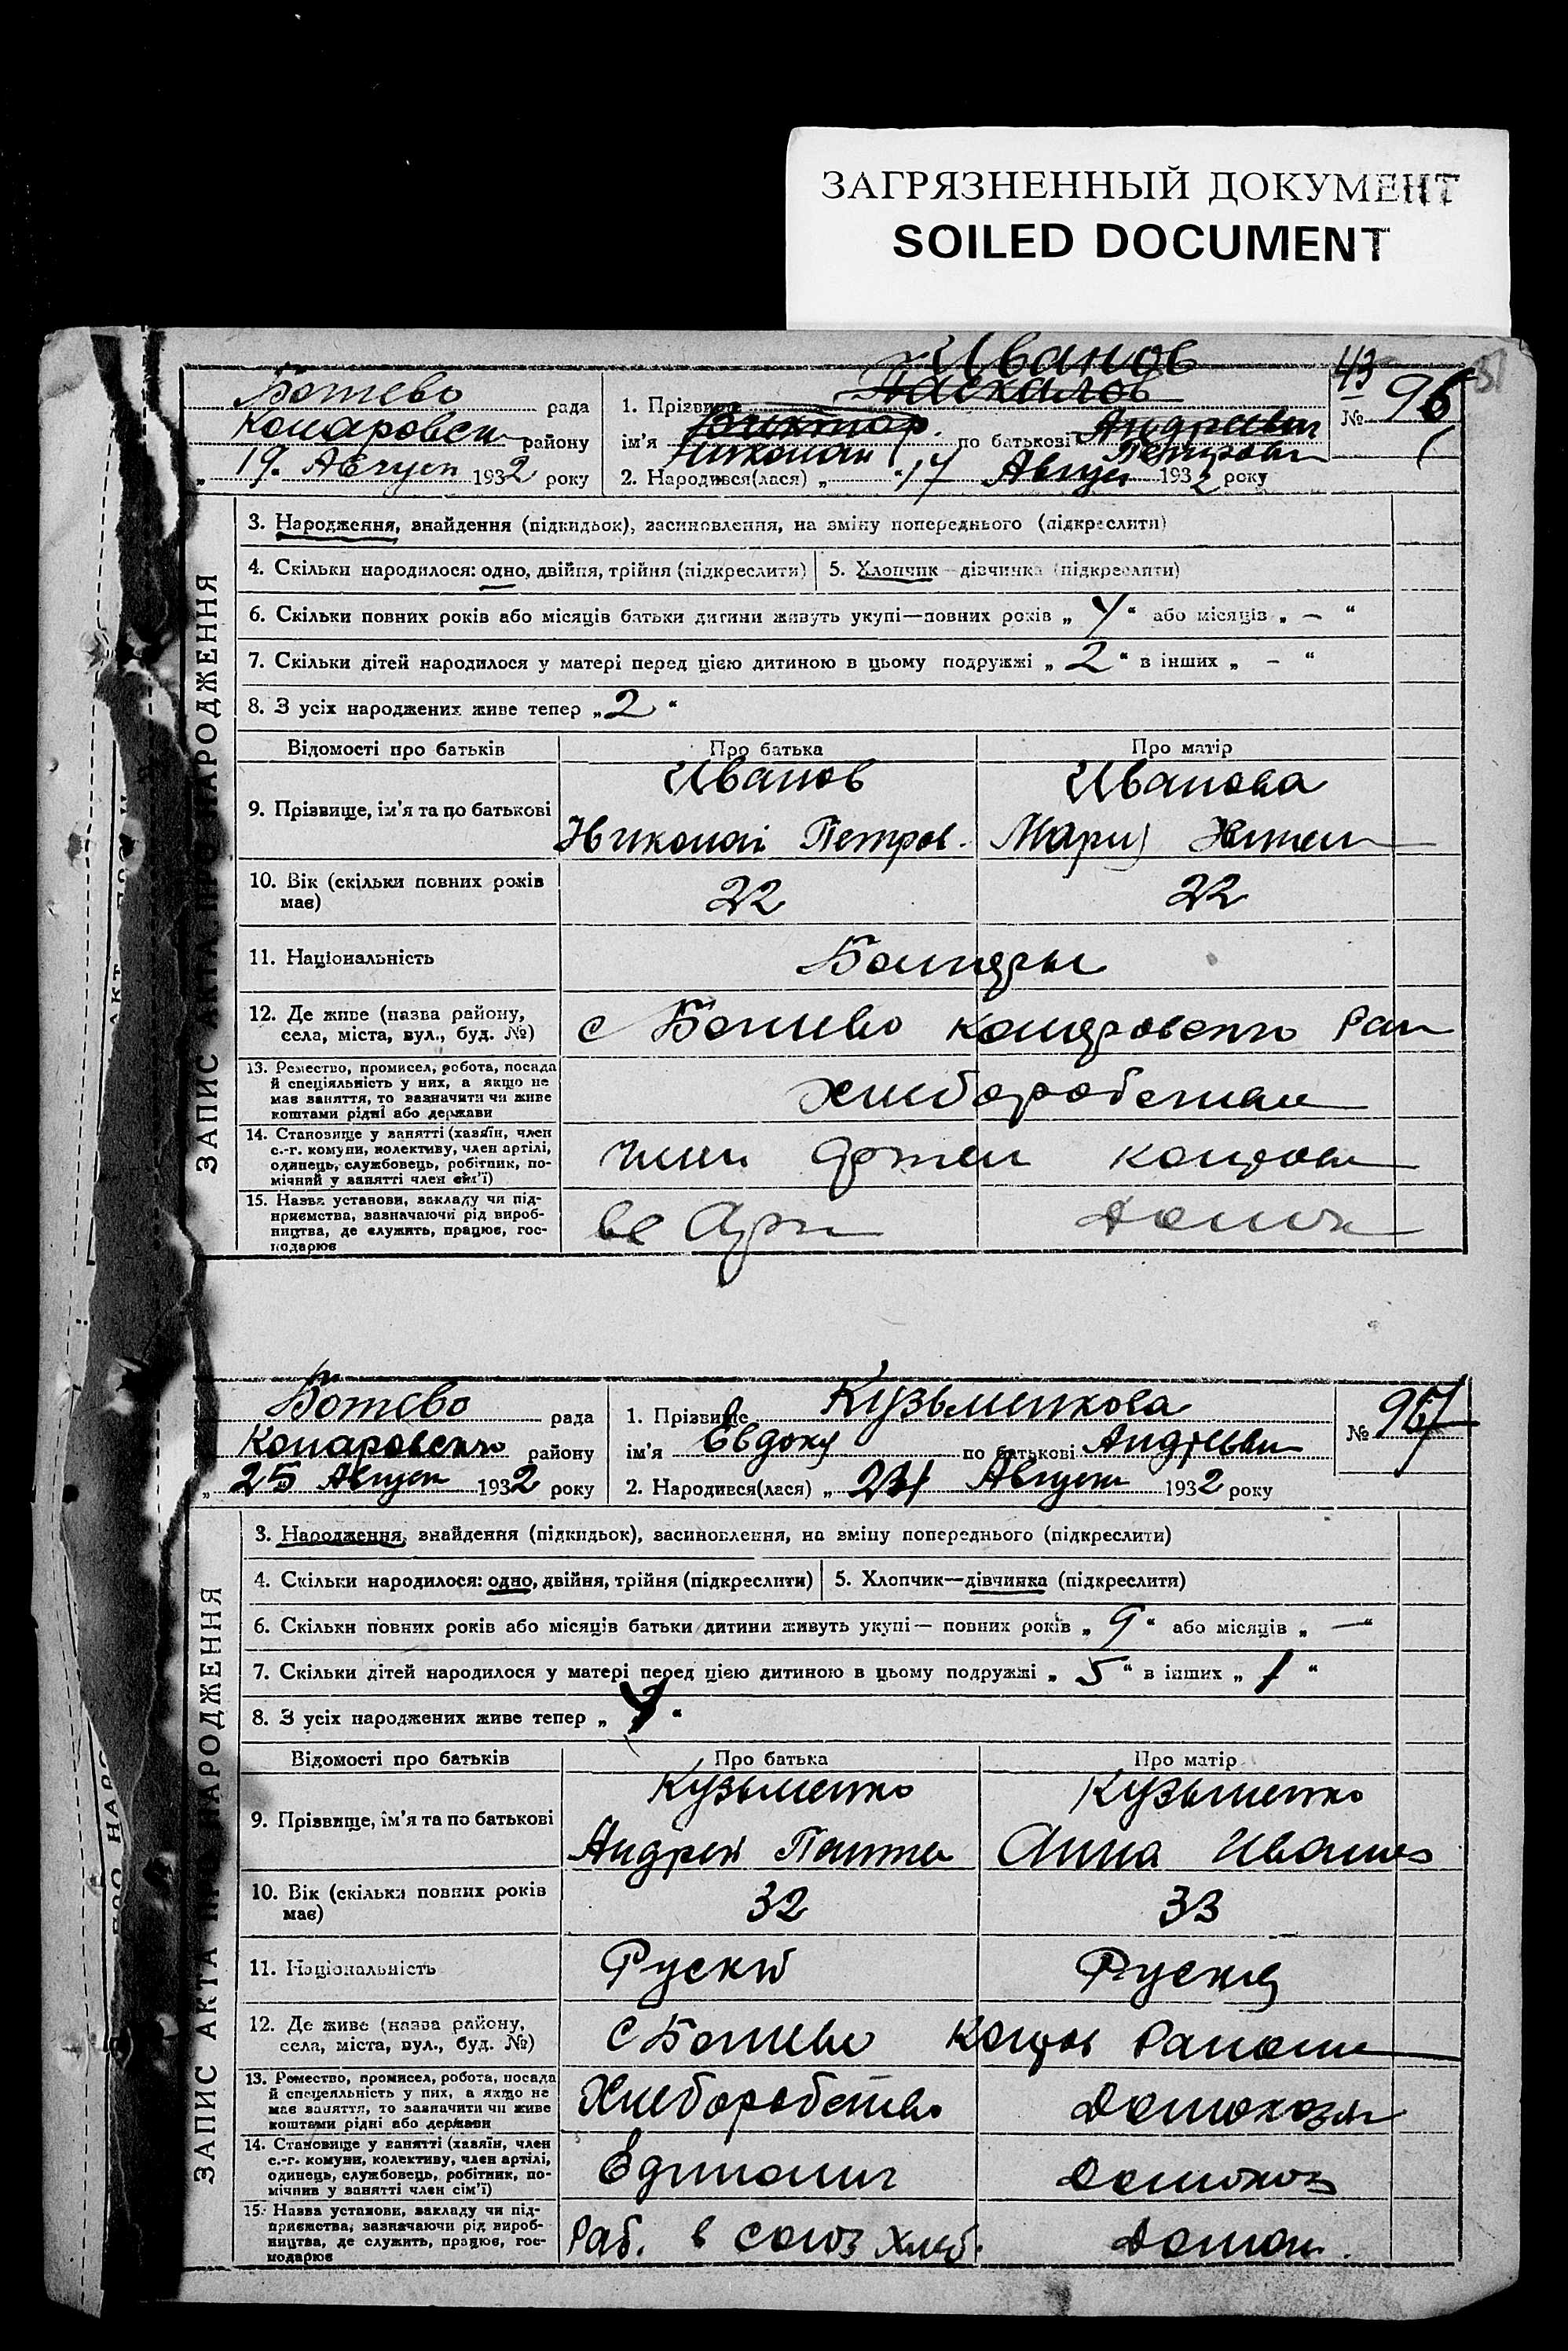 ЗАГРЯЗНЕННЫЙ ДОКУМЕНТ
SOILED DOCUMENT
51
Иванов
43
Ботево рада
1. Прізвище Пасхалов
№ 96
Комаровск району
ім'я Виктор по батькові Андреевич
Николай Петрови
„ 19. Август 1932 року
2. Народився(лася) „ 17 Август 1932 року
ЗАПИС АКТА ПРО НАРОДЖЕННЯ
3. Народження, знайдення (підкидьок), засиновлення, на зміну попереднього (підкреслити)
4. Скільки народилося: одно, двійня, трійня (підкреслити)
5. Хлопчик—дівчинка (підкреслити)
6. Скільки повних років або місяців батьки дитини живуть укупі—повних років „ 4 “ або місяців „ – “
7. Скільки дітей народилося у матері перед цією дитиною в цьому подружжі „ 2 “ в інших „ – “
8. З усіх народжених живе тепер „ 2 “
Відомості про батьків
Про батька
Про матір
9. Прізвище, ім'я та по батькові
Иванов
Николай Петров.
Иванова
Мария
10. Вік (скільки повних років має)
22
22
11. Національність
Болгары
12. Де живе (назва району, села, міста, вул., буд. №)
с Ботево Коларовского Рай
13. Ремество, промисел, робота, посада й спеціяльність у них, а якщо не має заняття, то зазначити чи живе коштами рідні або держави
хлеборобство
14. Становище у занятті (хазяїн, член с.-г. комуни, колективу, член артілі, одинець, службовець, робітник, помічний у занятті член сім'ї)
член Артели
15. Назва установи, закладу чи підприємства, зазначаючи рід виробництва, де служить, працює, господарює
Ботево рада
1. Прізвище Кузьменкова
№ 97
Коларовского району
ім'я Евдоку по батькові Андреевн
„ 25 Август 1932 року
2. Народився(лася) „ 24 Август 1932 року
ЗАПИС АКТА ПРО НАРОДЖЕННЯ
3. Народження, знайдення (підкидьок), засиновлення, на зміну попереднього (підкреслити)
4. Скільки народилося: одно, двійня, трійня (підкреслити)
5. Хлопчик—дівчинка (підкреслити)
6. Скільки повних років або місяців батьки дитини живуть укупі— повних років „ 9 “ або місяців „ — “
7. Скільки дітей народилося у матері перед цією дитиною в цьому подружжі „ 5 “ в інших „ 1 “
8. З усіх народжених живе тепер „ 4 “
Відомості про батьків
Про батька
Про матір
9. Прізвище, ім'я та по батькові
Кузьменко
Андрей
Кузьменко
Анна Иванов
10. Вік (скільки повних років має)
32
33
11. Національність
Руский
Руская
12. Де живе (назва району, села, міста, вул., буд. №)
с Ботево Колар Район
13. Ремество, промисел, робота, посада й спецеяльність у них, а якщо не має заняття, то зазначити чи живе коштами рідні або держави
Хлеборобство
Домохозяй
14. Становище у занятті (хазяїн, член с.-г. комуни, колективу, член артілі, одинець, службовець, робітник, помічник у занятті член сім'ї)
Единолич
Домохоз
15. Назва установи, закладу чи підприємства, зазначаючи рід виробництва, де служить, працює, господарює
Раб. в союз хлеб.
Домох.